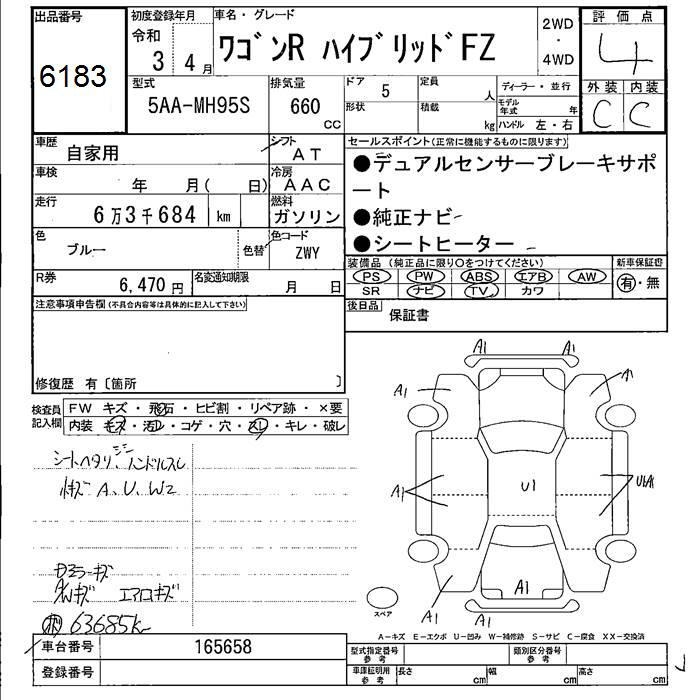 出品番号 初度登録年月 車名・グレード 2WD 評価点
6183 令和 3 4月 ワゴンR ハイブリッドFZ ・ 4WD 4
型式 排気量 ドア 5 定員 人 ディーラー・並行 外装 内装
5AA-MH95S 660 CC 形状 積載 kg モデル年式 年 C C
ハンドル 左・右
車歴 自家用 シフト AT セールスポイント(正常に機能するものに限ります)
車検 年 月( 日) 冷房 AAC ●デュアルセンサーブレーキサポート
走行 6万3千684 km 燃料 ガソリン ●純正ナビ
色 ブルー 色替 色コード ZWY ●シートヒーター
装備品(純正品に限り○をつけてください) 新車保証書
R券 6,470円 名変通知期限 月 日 PS PW ABS エアB AW 有・無
SR ナビ TV カワ
注意事項申告欄(不具合内容等は具体的に記入して下さい) 後日品 保証書
修復歴 有〔箇所 〕
検査員記入欄 FW キズ・飛石・ヒビ割・リペア跡・×要
内装 キズ・汚レ・コゲ・穴・スレ・キレ・破レ
シートヘタリ、シミ ハンドルスレ
小キズ A、U、W2
ドアミラーキズ
A/Wキズ エアロキズ
63685k
A1 A1
A1 A1
A1 U1 UA1
A1
A1 A1
A1 A1
スペア
A-キズ E-エクボ U-凹み W-補修跡 S-サビ C-腐食 XX-交換済
車台番号 165658 型式指定番号 参考 類別区分番号 参考
登録番号 車庫証明用 参考 長さ cm 幅 cm 高さ cm